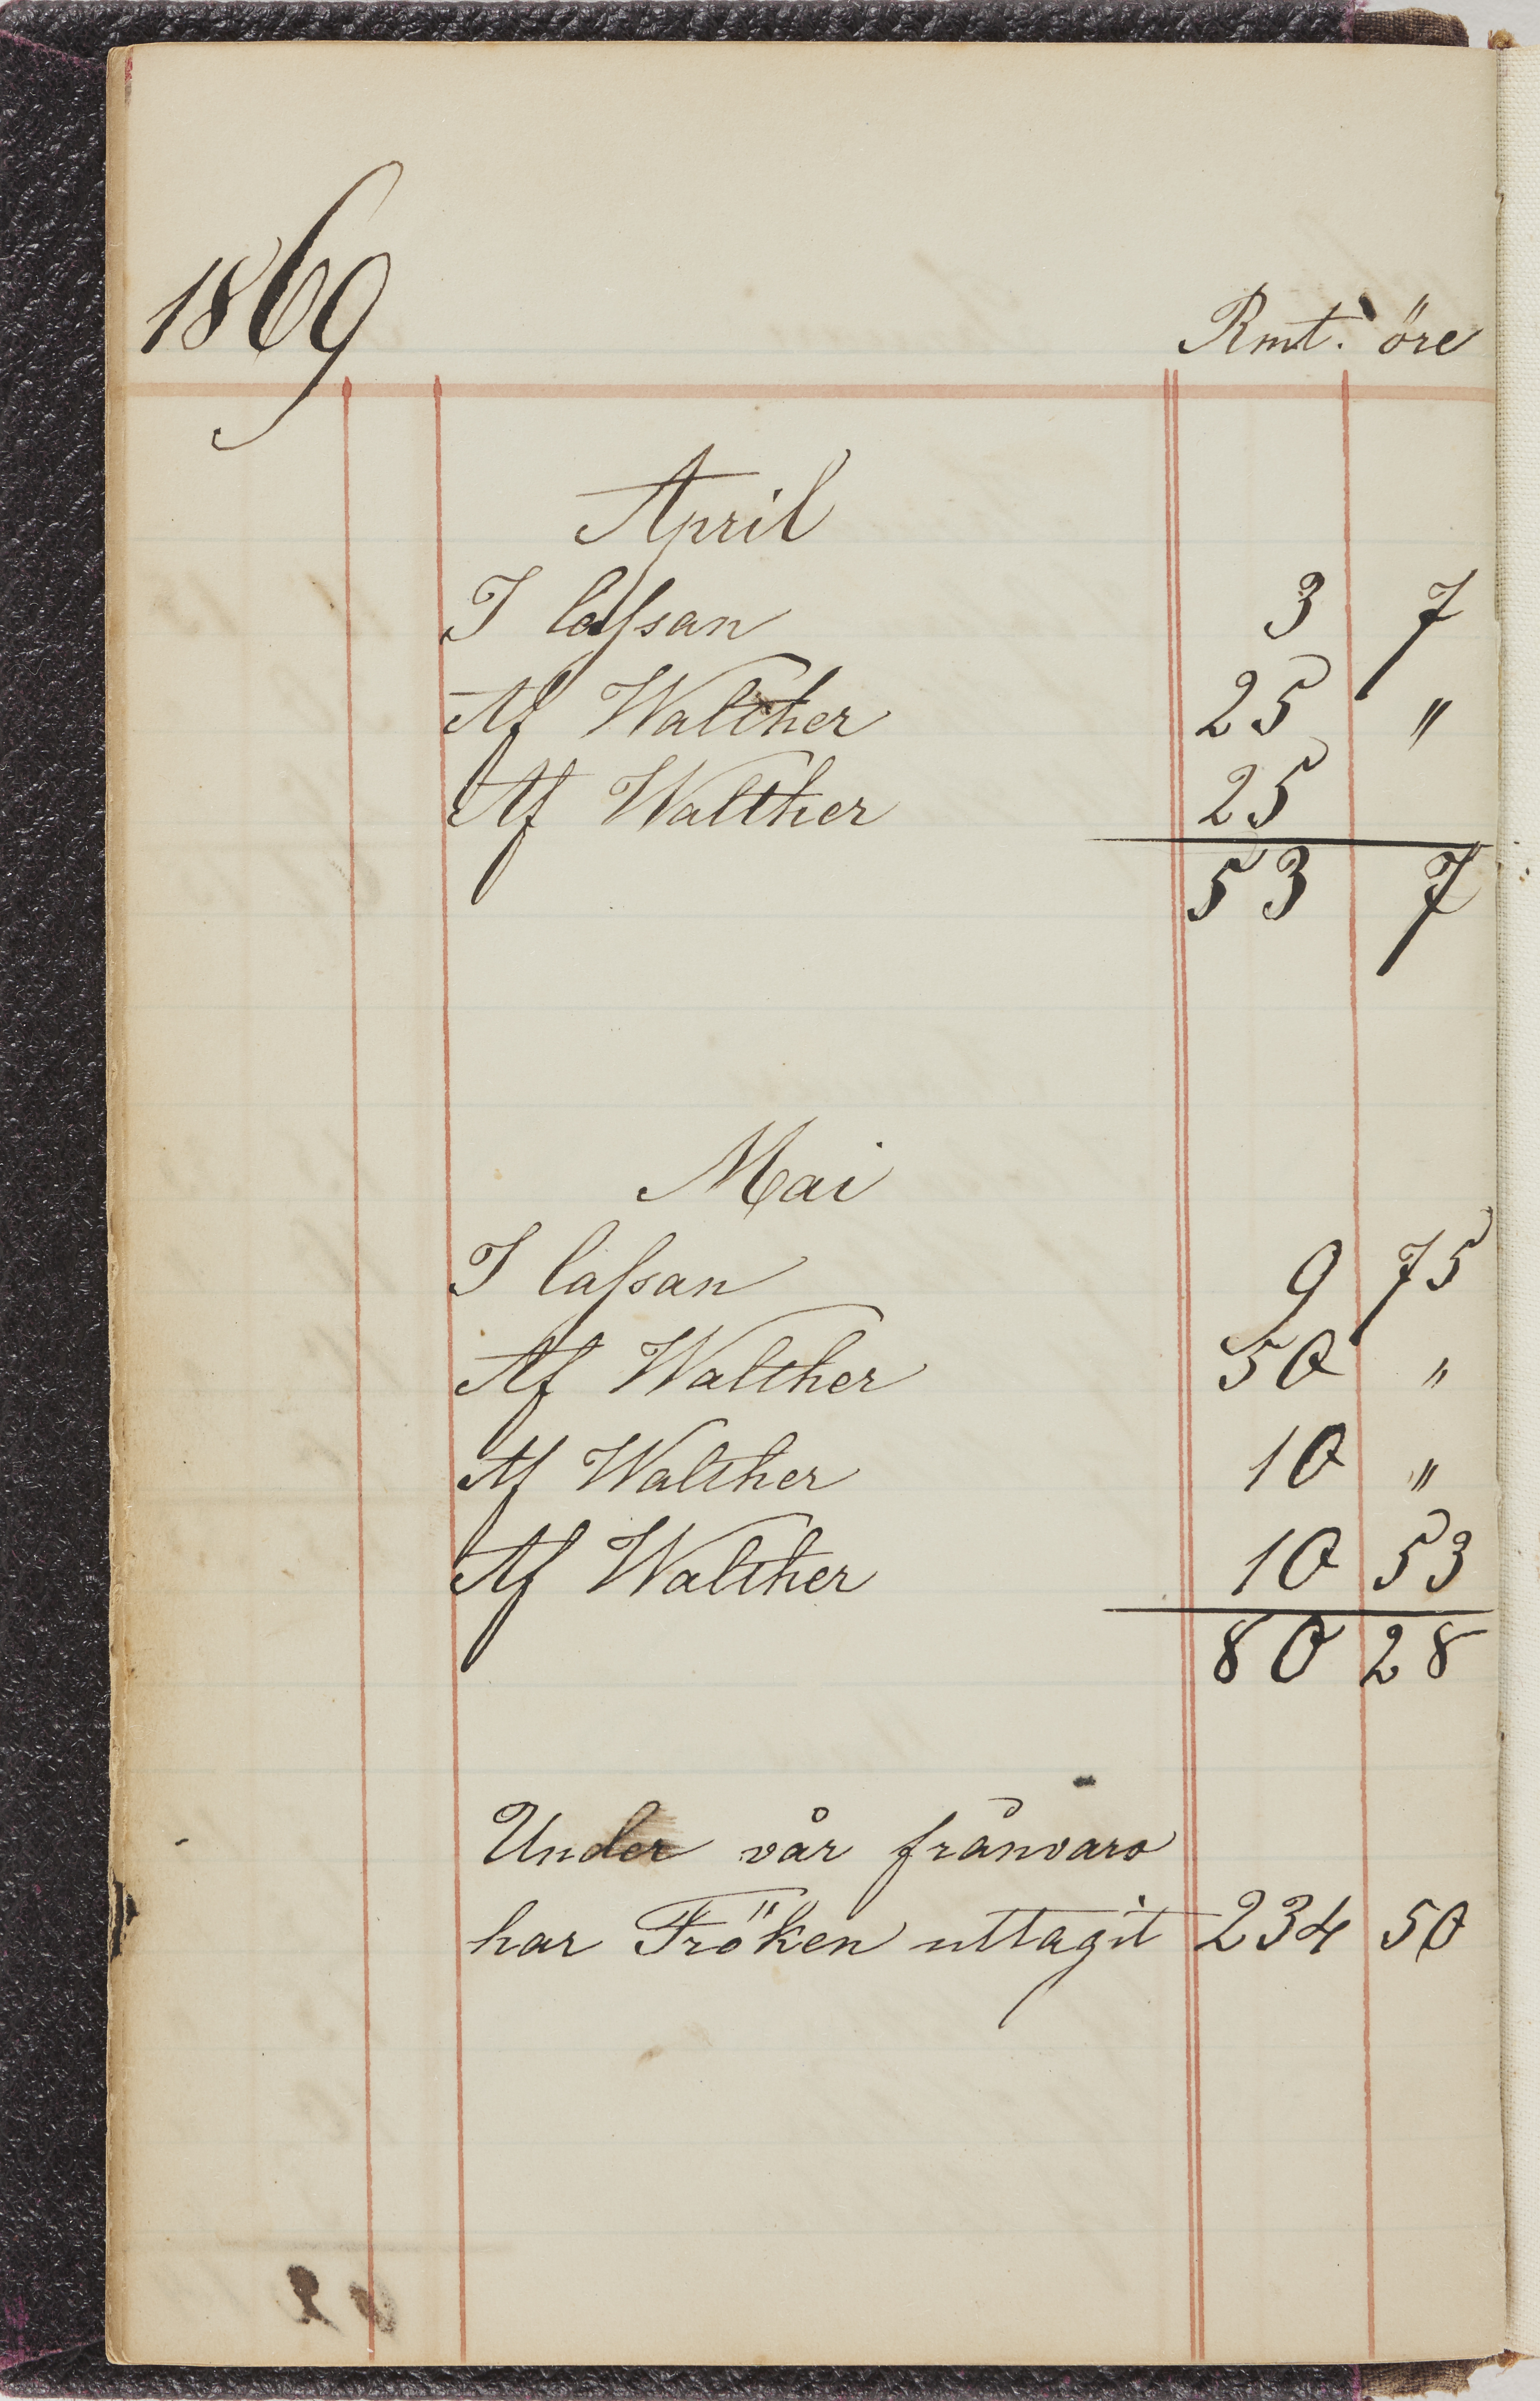 1869
Rmt. öre
April
I cassan 3 7
Af Walther 25 "
Af Walther 25
53 7
Mai
I cassan 9 75
Af Walther 50 "
Af Walther 10 "
Af Walther 10 53
80 28
Under vår frånvaro
har Fröken uttagit 234 50